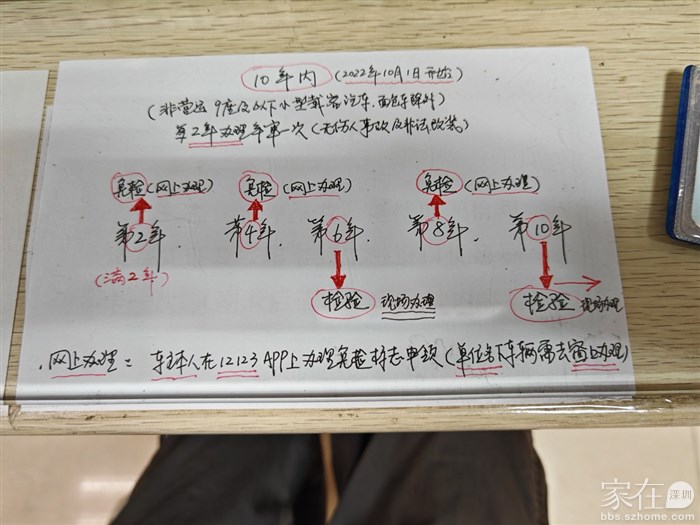 10年内 (2022年10月1日开始)
(非营运9座及以下小型载客汽车,面包车除外)
每2年办理年审一次 (无伤人事故及非法改装)
免检 (网上办理) 免检 (网上办理) 免检 (网上办理)
第2年. 第4年. 第6年. 第8年. 第10年
(满2年)
检验 现场办理 检验 现场办理
.网上办理: 车主本人在12123APP上办理免检标志申领 (单位名下车辆需去窗上办理)
家在 深圳
bbs.szhome.com